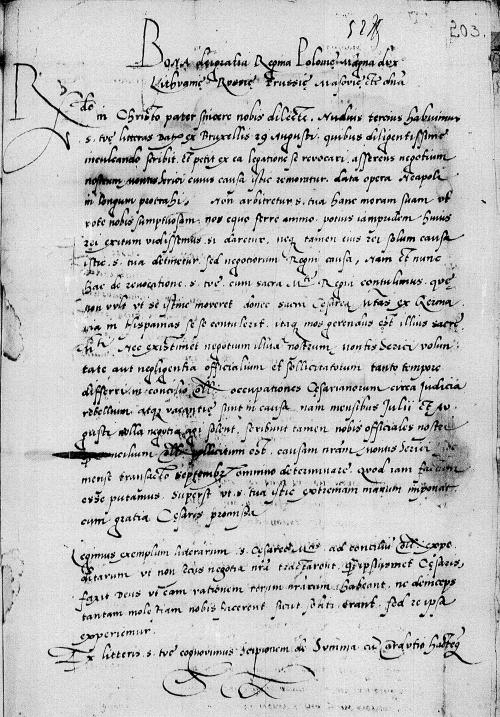 203.
Bona dei gratia Regina Polonię Magna dux
Lithuanię Russię Prussię Masovię etc. dna
Rde in Christo pater sincere nobis dilecte. Nudius tercius habuimus
s. tuę litteras datas ex Bruxellis 29 Augusti, quibus diligentissime
inculcando scribit et petit ex ea legatione se revocari, asserens negotium
nostrum montis serici cuius causa istic remoratur data opera Neapoli
in longum protrahi. Non arbitretur s. tua hanc moram suam ut
pote nobis sumptuosam nos equo ferre animo. potius iampridem huius
rei exitum vidissemus si daretur, neq tamen eius rei solum causa
istic s. tua detinetur sed negotiorum Regni causa, Nam et nunc
hac de revocatione s. tuę cum sacra Mte Regni contulimus. quę
non vult ut se istinc moveret donec sacra Cesarea Mtas ex Germa
nia in Hispanias se se contulerit. itaq mos gerendus est illius sacre
Mti. Nec existimet negotium illud nostrum montis serici volun
tate aut negligentia officialium et sollicitatorum tanto tempore
differri. in concilio coll. occupationes Cesarianorum circa judicia
rebellium atq vacantię sunt in causa. nam mensibus Julii et Au
gusti nulla negotia agi solent. scribunt tamen nobis officiales nostri
concilium coll. pollicitum est causam nram montis serici
mense transacto septembri omnino determinare. Quod iam factum
esse putamus. Superest ut s. tua istic extremam manum imponat
cum gratia Cesaris promissa
Legimus exemplum litterarum s. Cesareę Mtis ad concilium coll. expe
ditarum ut non secus negotia nra tractarent, qm ipsiusmet Cesaris,
faxit Deus ut eam rationem rerum nrarum habeant. ne deinceps
tantam molestiam nobis facerent sicut soliti erant. sed re ipsa
experiemur.
Ex litteris s. tuę cognovimus Scipionem de Summa cu